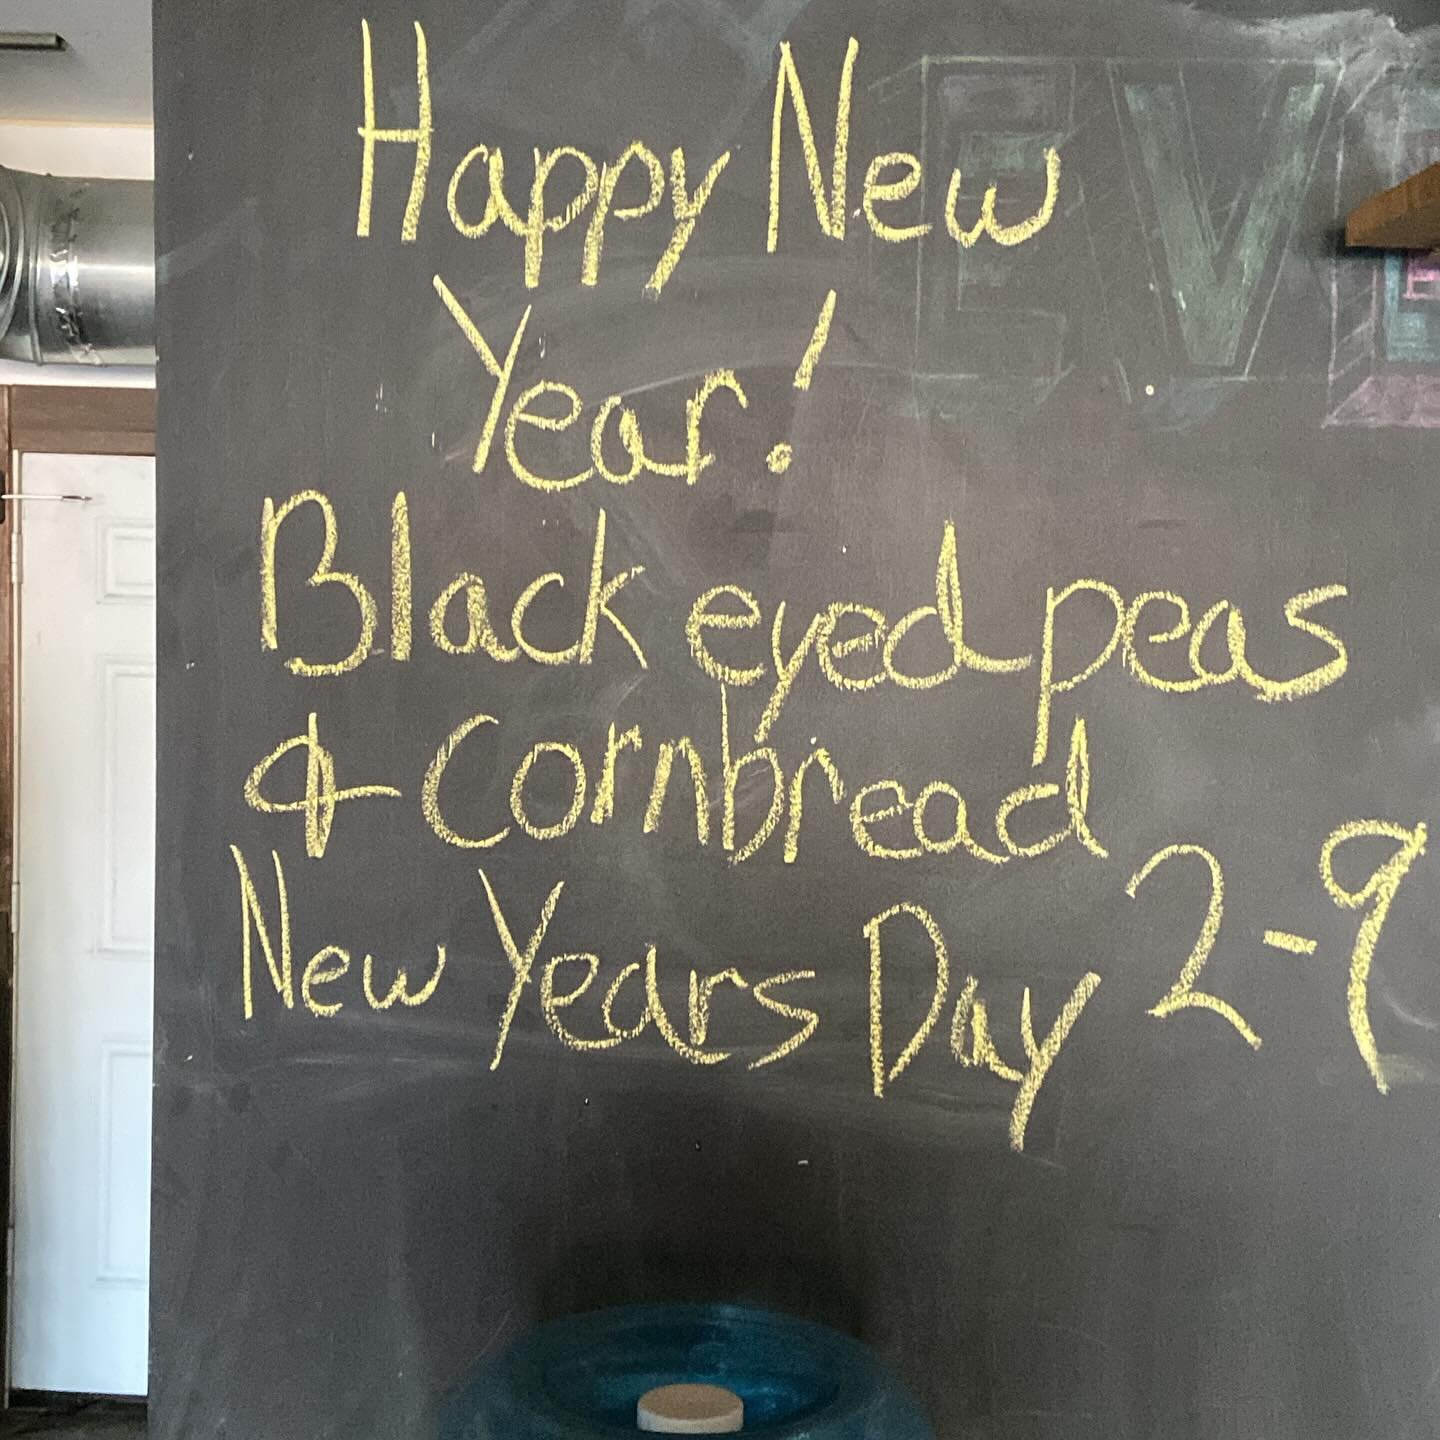 Happy New
Year!
Black eyed peas
& Cornbread
New Years Day 2-9
EV